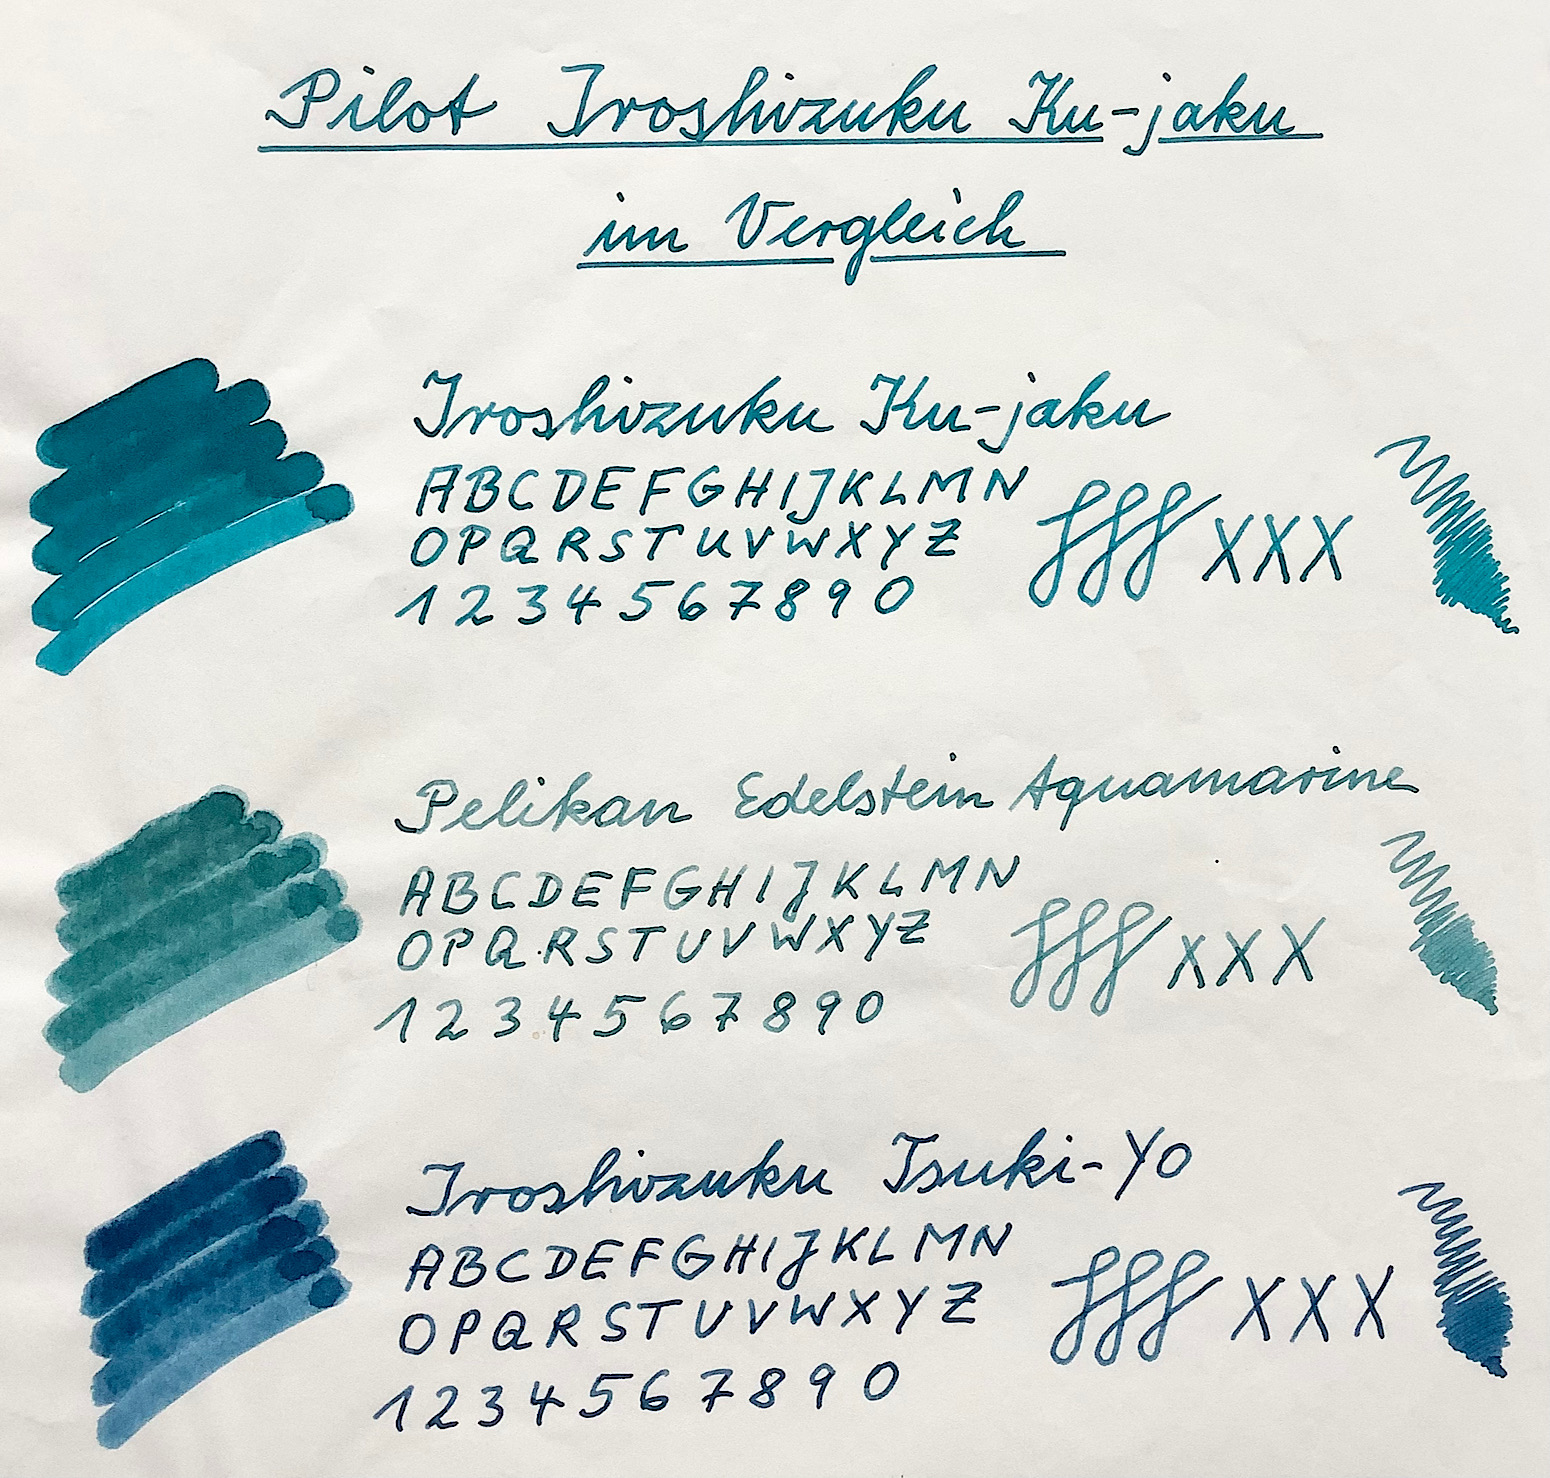 Pilot Iroshizuku Ku-jaku
im Vergleich
Iroshizuku Ku-jaku
ABCDEFGHIJKLMN
OPQRSTUVWXYZ
1234567890
fff XXX
Pelikan Edelstein Aquamarine
ABCDEFGHIJKLMN
OPQRSTUVWXYZ
1234567890
fff XXX
Iroshizuku Tsuki-Yo
ABCDEFGHIJKLMN
OPQRSTUVWXYZ
1234567890
fff XXX